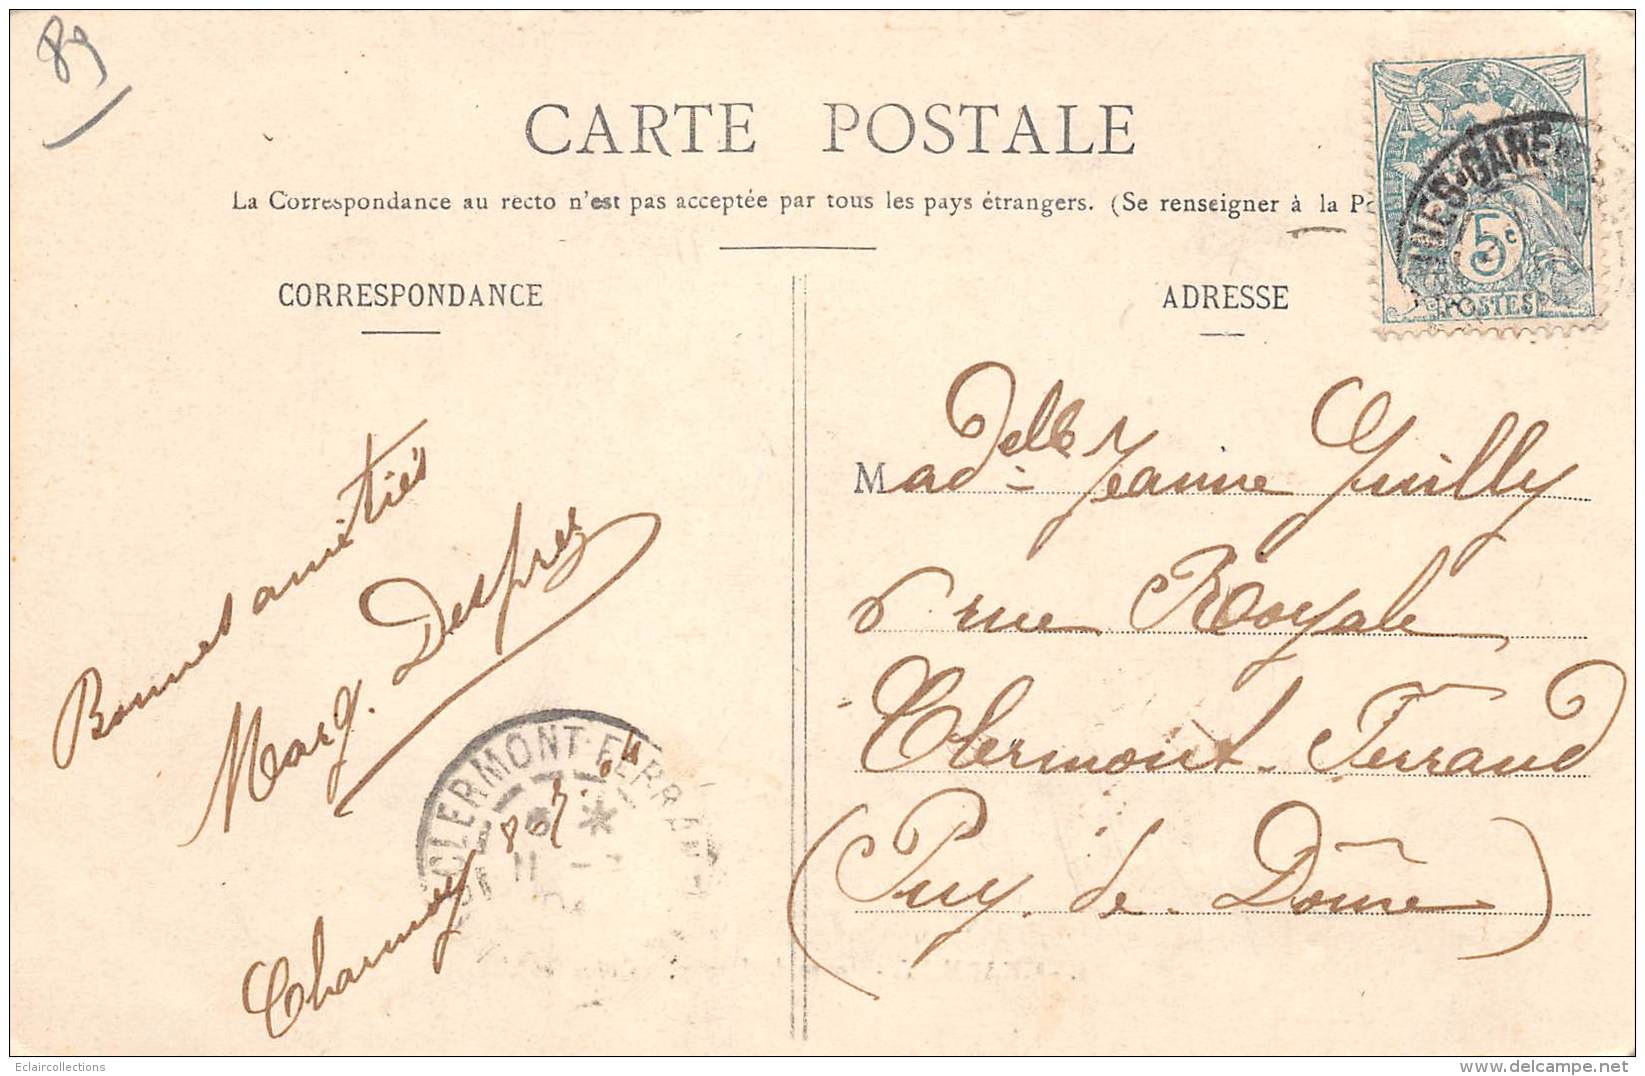 89
CARTE POSTALE
La Correspondance au recto n'est pas acceptée par tous les pays étrangers. (Se renseigner à la
CORRESPONDANCE
ADRESSE
5c
POSTES
GARE
Bonnes amitiés
Marg. Desprez
Charmoy 8.7.04
CLERMONT-FERRAND
11
Madelle Jeanne Guilly
6 rue Royale
Clermont-Ferrand
(Puy-de-Dôme)
Eclaircollections
delcampe.net